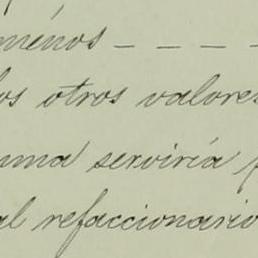 ménos - - - -
los otros valores
uma serviria p
al refaccionario